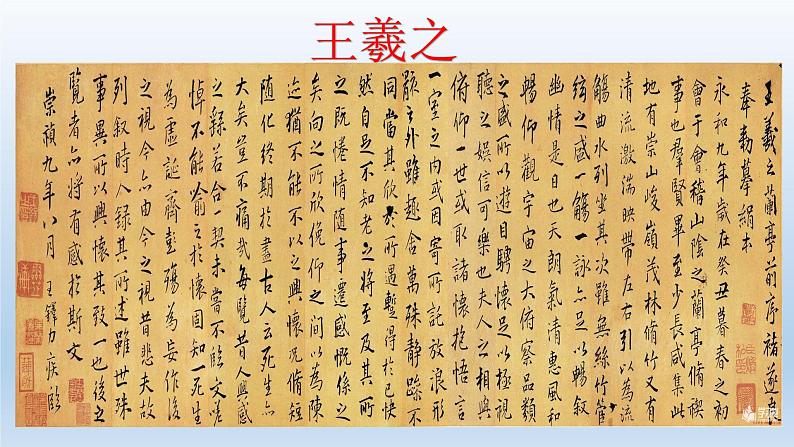 王羲之
王羲之蘭亭前序褚遂良
奉勅摹絹本
永和九年歲在癸丑暮春之初
會于會稽山陰之蘭亭脩禊
事也羣賢畢至少長咸集此
地有崇山峻嶺茂林脩竹又有
清流激湍映帶左右引以為流
觴曲水列坐其次雖無絲竹管
絃之盛一觴一詠亦足以暢敘
幽情是日也天朗氣清惠風和
暢仰觀宇宙之大俯察品類
之盛所以遊目騁懷足以極視
聽之娛信可樂也夫人之相與
俯仰一世或取諸懷抱悟言
一室之内或因寄所託放浪形
骸之外雖趣舍萬殊静躁不
同當其欣於所遇蹔得於己快
然自足不知老之將至及其所
之既惓情隨事遷感慨係之
矣向之所欣俛仰之間以為陳
迹猶不能不以之興懷況脩短
隨化終期於盡古人云死生亦
大矣豈不痛哉每覽昔人興感
之録若合一契未嘗不臨文嗟
悼不能喻之於懷固知一死生
為虛誕齊彭殤為妄作後
之視今亦由今之視昔悲夫故
列敘時人録其所述雖世殊
事異所以興懷其致一也後之
覽者亦將有感於斯文
崇禎九年八月 王鐸力疾臨